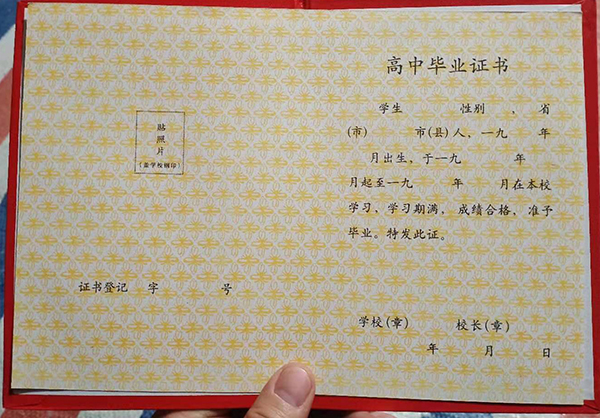 贴
照
片
(盖学校钢印)
证书登记 字 号
高中毕业证书
学生 性别 , 省
(市) 市(县)人、一九 年
月出生, 于一九 年
月起至一九 年 月在本校
学习、学习期满, 成绩合格, 准予
毕业。特发此证。
学校(章) 校长(章)
年 月 日